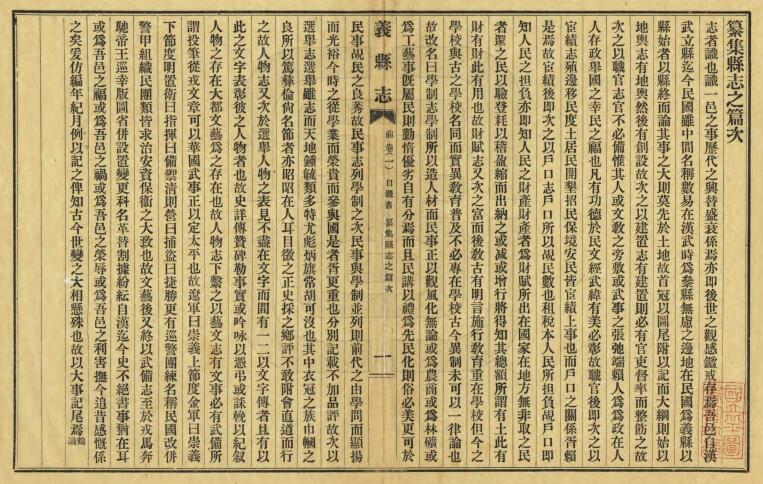 纂集縣志之篇次
志者識也識一邑之事歷代之興替盛衰係焉亦即後世之觀感鑑戒存焉吾邑自漢
武立縣迄今民國雖中間名稱數易在漢武時爲絫縣無慮之邊地在民國爲義縣以
縣始者以縣終而論其事之大則莫先於土地故首冠以圖尾附以記而大綱則始以
地輿志有地輿然後有創設故次之以建置志有建置則必有官吏督率而整飭之故
次之以職官志官不必備惟其人或文教之旁敷或武事之張弛端賴人爲爲政在人
人存政舉國之幸民之福也凡有功德於民文經武緯有美必彰故職官後即次之以
宦績志殖邊移民度土居民開墾招民保境安民皆宦績上事也而戶口之關係胥賴
是焉故宦績後即次之以戶口志戶口所以覘民數也租稅本人民所担負覘戶口即
知人民之担負亦即知人民之財產財產者爲財賦所出在國家在地方無非取之民
者還之民以驗登耗以稽盈縮而出納之或減或增行將得知其總額所謂有土此有
財有財此有用也故財賦志又次之富而後教古有明言施行教育重在學校但今之
學校與古之學校名同而實異教育普及不必專在學校古今異制未可以一律論也
故改名曰學制志學制所以造人材而民事正以觀風化無論或爲農商或爲林礦或
爲工藝事旣屬民則勤惰優劣自有分焉而且民講以禮爲先民化則俗必美更可於
義縣志
前卷(一)
目錄書 纂集縣志之篇次
一
民事覘民之良莠故民事志列學制之次民事與學制並列則前代之由學問而顯揚
而光裕今時之從學業而榮貴而參與國是者胥更重也分別記載不加品評故次以
選舉志選舉雖志而天地鍾毓類多特尤彪炳旂常胡可沒也其中衣冠之族巾幗之
良所以篤彝倫尙名節者亦昭昭在人耳目徵之正史採之鄉評不敢附會直道而行
之故人物志又次於選舉人物之表見不盡在文字而間有一二以文字傳者且有以
此之文字表彰彼之人物者也故史詳傳贊碑勒事實或吟咏以憑弔或誄輓以紀叙
人物之存在大都文藝爲之存在也故人物志下繫之以藝文志有文事必有武備所
謂投筆從戎文章可以華國武事正以定太平也故遼軍曰崇義上節度金軍曰崇義
下節度明置衛曰指揮曰備禦清則營曰捕盜曰捷勝更有巡警團練名稱民國改併
警甲組織民團類皆求治安資保衛之大致也故文藝後又終以武備志至於戎馬奔
馳帝王巡幸版圖省併設置變更科名革替割據紛紜自漢迄今史不絕書事猶在耳
或爲吾邑之福或爲吾邑之禍或爲吾邑之榮辱或爲吾邑之利害撫今追昔感慨係
之矣爰仿編年紀月例以記之俾知古今世變之大相懸殊也故以大事記尾焉